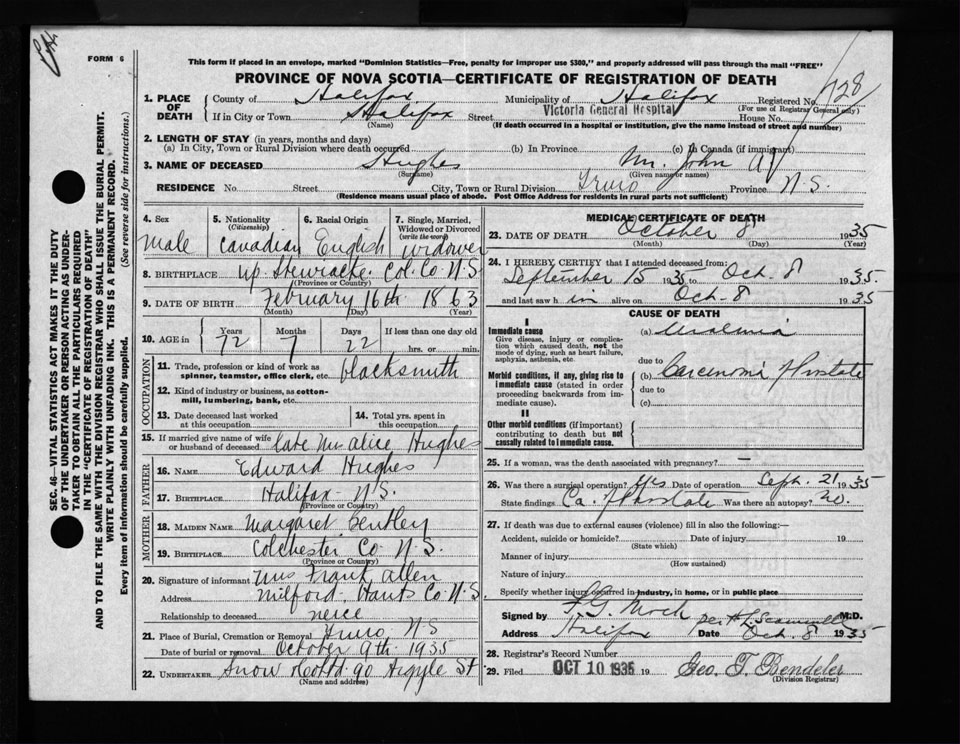 FORM 6
This form if placed in an envelope, marked "Dominion Statistics—Free, penalty for improper use $300," and properly addressed will pass through the mail "FREE"
PROVINCE OF NOVA SCOTIA—CERTIFICATE OF REGISTRATION OF DEATH
1. PLACE OF DEATH County of Halifax Municipality of Halifax Registered No. 1728
(For use of Registrar General only)
If in City or Town Halifax Street Victoria General Hospital House No.
(Name) (If death occurred in a hospital or institution, give the name instead of street and number)
2. LENGTH OF STAY (in years, months and days)
(a) In City, Town or Rural Division where death occurred (b) In Province (c) In Canada (if immigrant)
3. NAME OF DECEASED Hughes Mr. John
(Surname) (Given name or names)
RESIDENCE No. Street City, Town or Rural Division Truro Province N.S.
(Residence means usual place of abode. Post Office Address for residents in rural parts not sufficient)
4. Sex male
5. Nationality (Citizenship) Canadian
6. Racial Origin English
7. Single, Married, Widowed or Divorced (write the word) widower
8. BIRTHPLACE Up. Stewiacke. Col. Co. N.S.
(Province or Country)
9. DATE OF BIRTH February 16th 1863
(Month) (Day) (Year)
10. AGE in Years 72 Months 7 Days 22 If less than one day old hrs. or min.
OCCUPATION
11. Trade, profession or kind of work as spinner, teamster, office clerk, etc. blacksmith
12. Kind of industry or business, as cotton-mill, lumbering, bank, etc.
13. Date deceased last worked at this occupation
14. Total yrs. spent in this occupation
15. If married give name of wife or husband of deceased Late Mrs Alice Hughes
FATHER
16. NAME Edward Hughes
17. BIRTHPLACE Halifax N.S.
(Province or Country)
MOTHER
18. MAIDEN NAME Margaret Bentley
19. BIRTHPLACE Colchester Co N.S.
(Province or Country)
20. Signature of informant Mrs Frank Allen
Address Milford, Hants Co. N.S.
Relationship to deceased neice
21. Place of Burial, Cremation or Removal Truro, N.S
Date of burial or removal October 9th 1935
22. UNDERTAKER Snow & Co Ltd 90 Argyle St
(Name and address)
MEDICAL CERTIFICATE OF DEATH
23. DATE OF DEATH October 8 1935
(Month) (Day) (Year)
24. I HEREBY CERTIFY that I attended deceased from:
September 15 1935 to Oct. 8 1935
and last saw h im alive on Oct. 8 1935
CAUSE OF DEATH
I
Immediate cause
Give disease, injury or complication which caused death, not the mode of dying, such as heart failure, asphyxia, asthenia, etc.
(a) Uraemia
due to
Morbid conditions, if any, giving rise to immediate cause (stated in order proceeding backwards from immediate cause).
(b) Carcinoma of Prostate
due to
(c)
II
Other morbid conditions (if important) contributing to death but not causally related to immediate cause.
25. If a woman, was the death associated with pregnancy? —
26. Was there a surgical operation? Yes Date of operation Sept. 21 1935
State findings Ca. of Prostate Was there an autopsy? no.
27. If death was due to external causes (violence) fill in also the following:—
Accident, suicide or homicide? Date of injury 19
(State which)
Manner of injury
(How sustained)
Nature of injury
Specify whether injury occurred in industry, in home, or in public place
Signed by F.G. Mack per M.D.
Address Halifax Date Oct. 8 1935
28. Registrar's Record Number
29. Filed OCT 10 1935 19 Geo. T. Bendeler
(Division Registrar)
SEC. 46—VITAL STATISTICS ACT MAKES IT THE DUTY
OF THE UNDERTAKER OR PERSON ACTING AS UNDER-
TAKER TO OBTAIN ALL THE PARTICULARS REQUIRED
IN THE "CERTIFICATE OF REGISTRATION OF DEATH"
AND TO FILE THE SAME WITH THE DIVISION REGISTRAR WHO SHALL ISSUE THE BURIAL PERMIT.
WRITE PLAINLY WITH UNFADING INK. THIS IS A PERMANENT RECORD.
Every item of information should be carefully supplied. (See reverse side for instructions.)